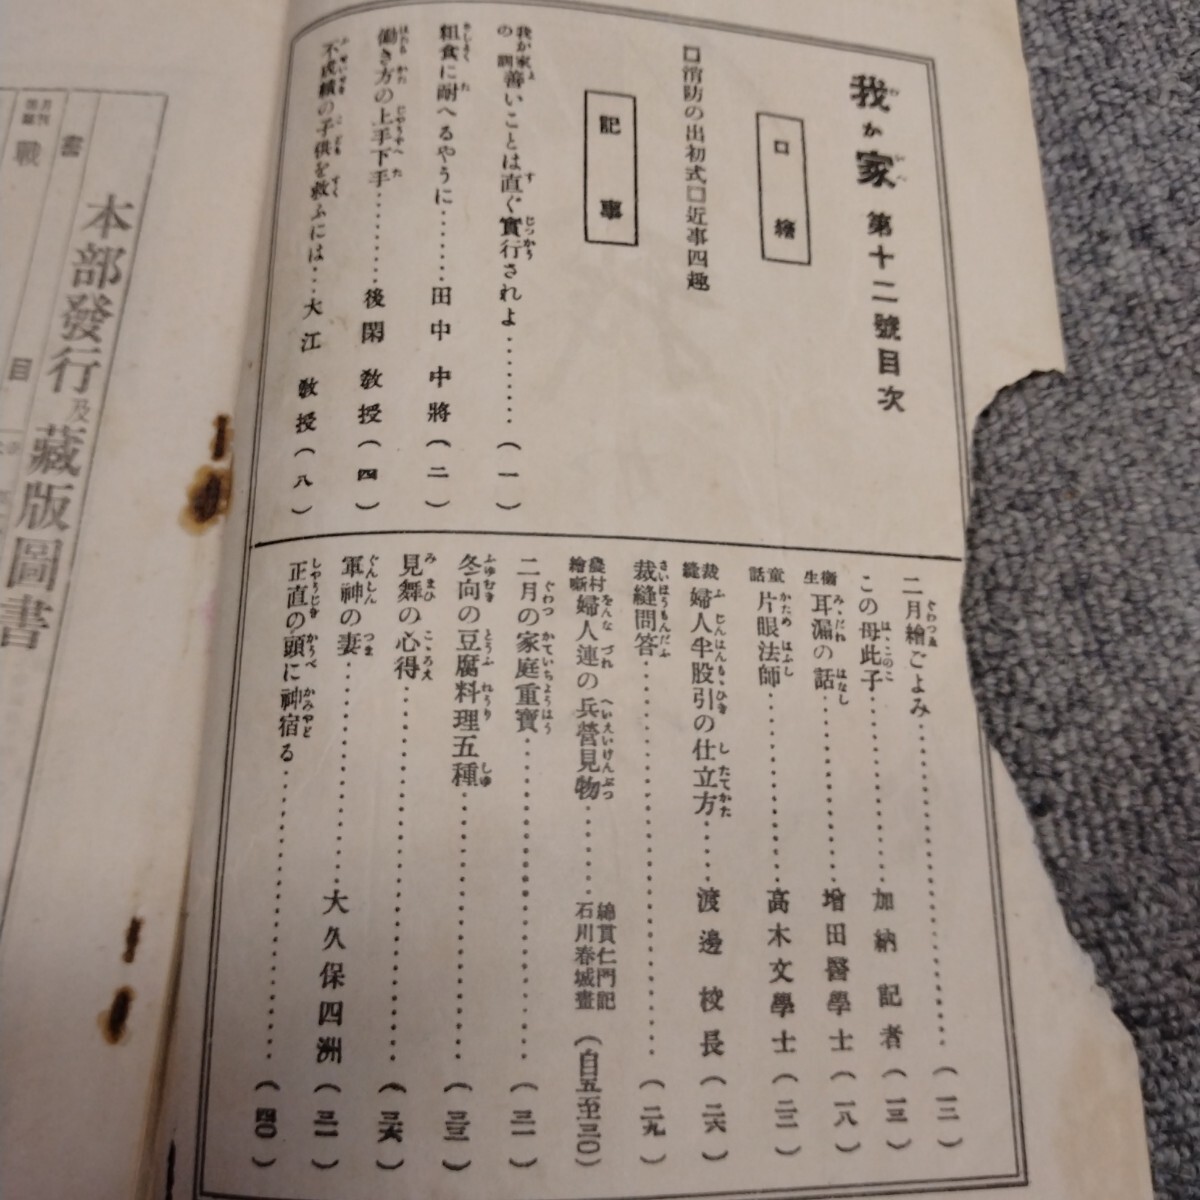 我が家 第十二號目次
口繪
□消防の出初式□近事四趣
記事
我が家の訓 善いことは直ぐ實行されよ………(一)
粗食に耐へるやうに………田中中將(二)
働き方の上手下手………後閑敎授(四)
不成績の子供を救ふには…大江敎授(八)
二月繪ごよみ………(一二)
この母此子………加納記者(一三)
衞生 耳漏の話………增田醫學士(一八)
童話 片眼法師………高木文學士(二二)
裁縫 婦人半股引の仕立方……渡邊校長(二六)
裁縫問答………(二九)
農村繪噺 婦人連の兵營見物……綿貫仁門記 石川春城畫(自五至三〇)
二月の家庭重寶………(三一)
冬向の豆腐料理五種………(三三)
見舞の心得………(三六)
軍神の妻………大久保四洲
正直の頭に神宿る………(四〇)
本部發行及藏版圖書